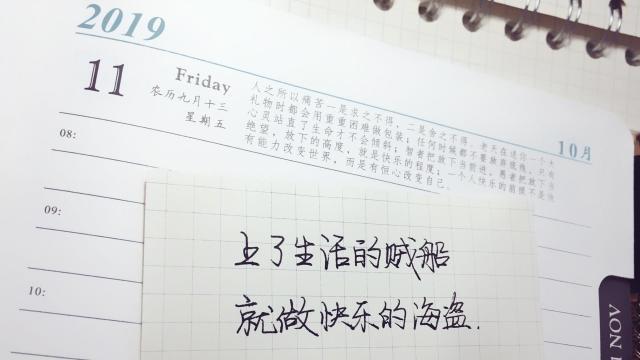 2019
11
Friday
农历九月十三
星期五
10月
人之所以痛苦一是求之不得,二是舍之不得。老天在送你一个大
礼物时都会用重重困难做包装;任何时候都不要放弃底线,只有
心灵站直了生命才不会倾斜;智者把放下当前进,愚者把放下当
绝望,放下的高度,就是快乐的程度;一个人快乐的前提不是快
有能力改变世界,而是有恒心改变自己。
08:
09:
10:
上了生活的贼船
就做快乐的海盗.
NOV